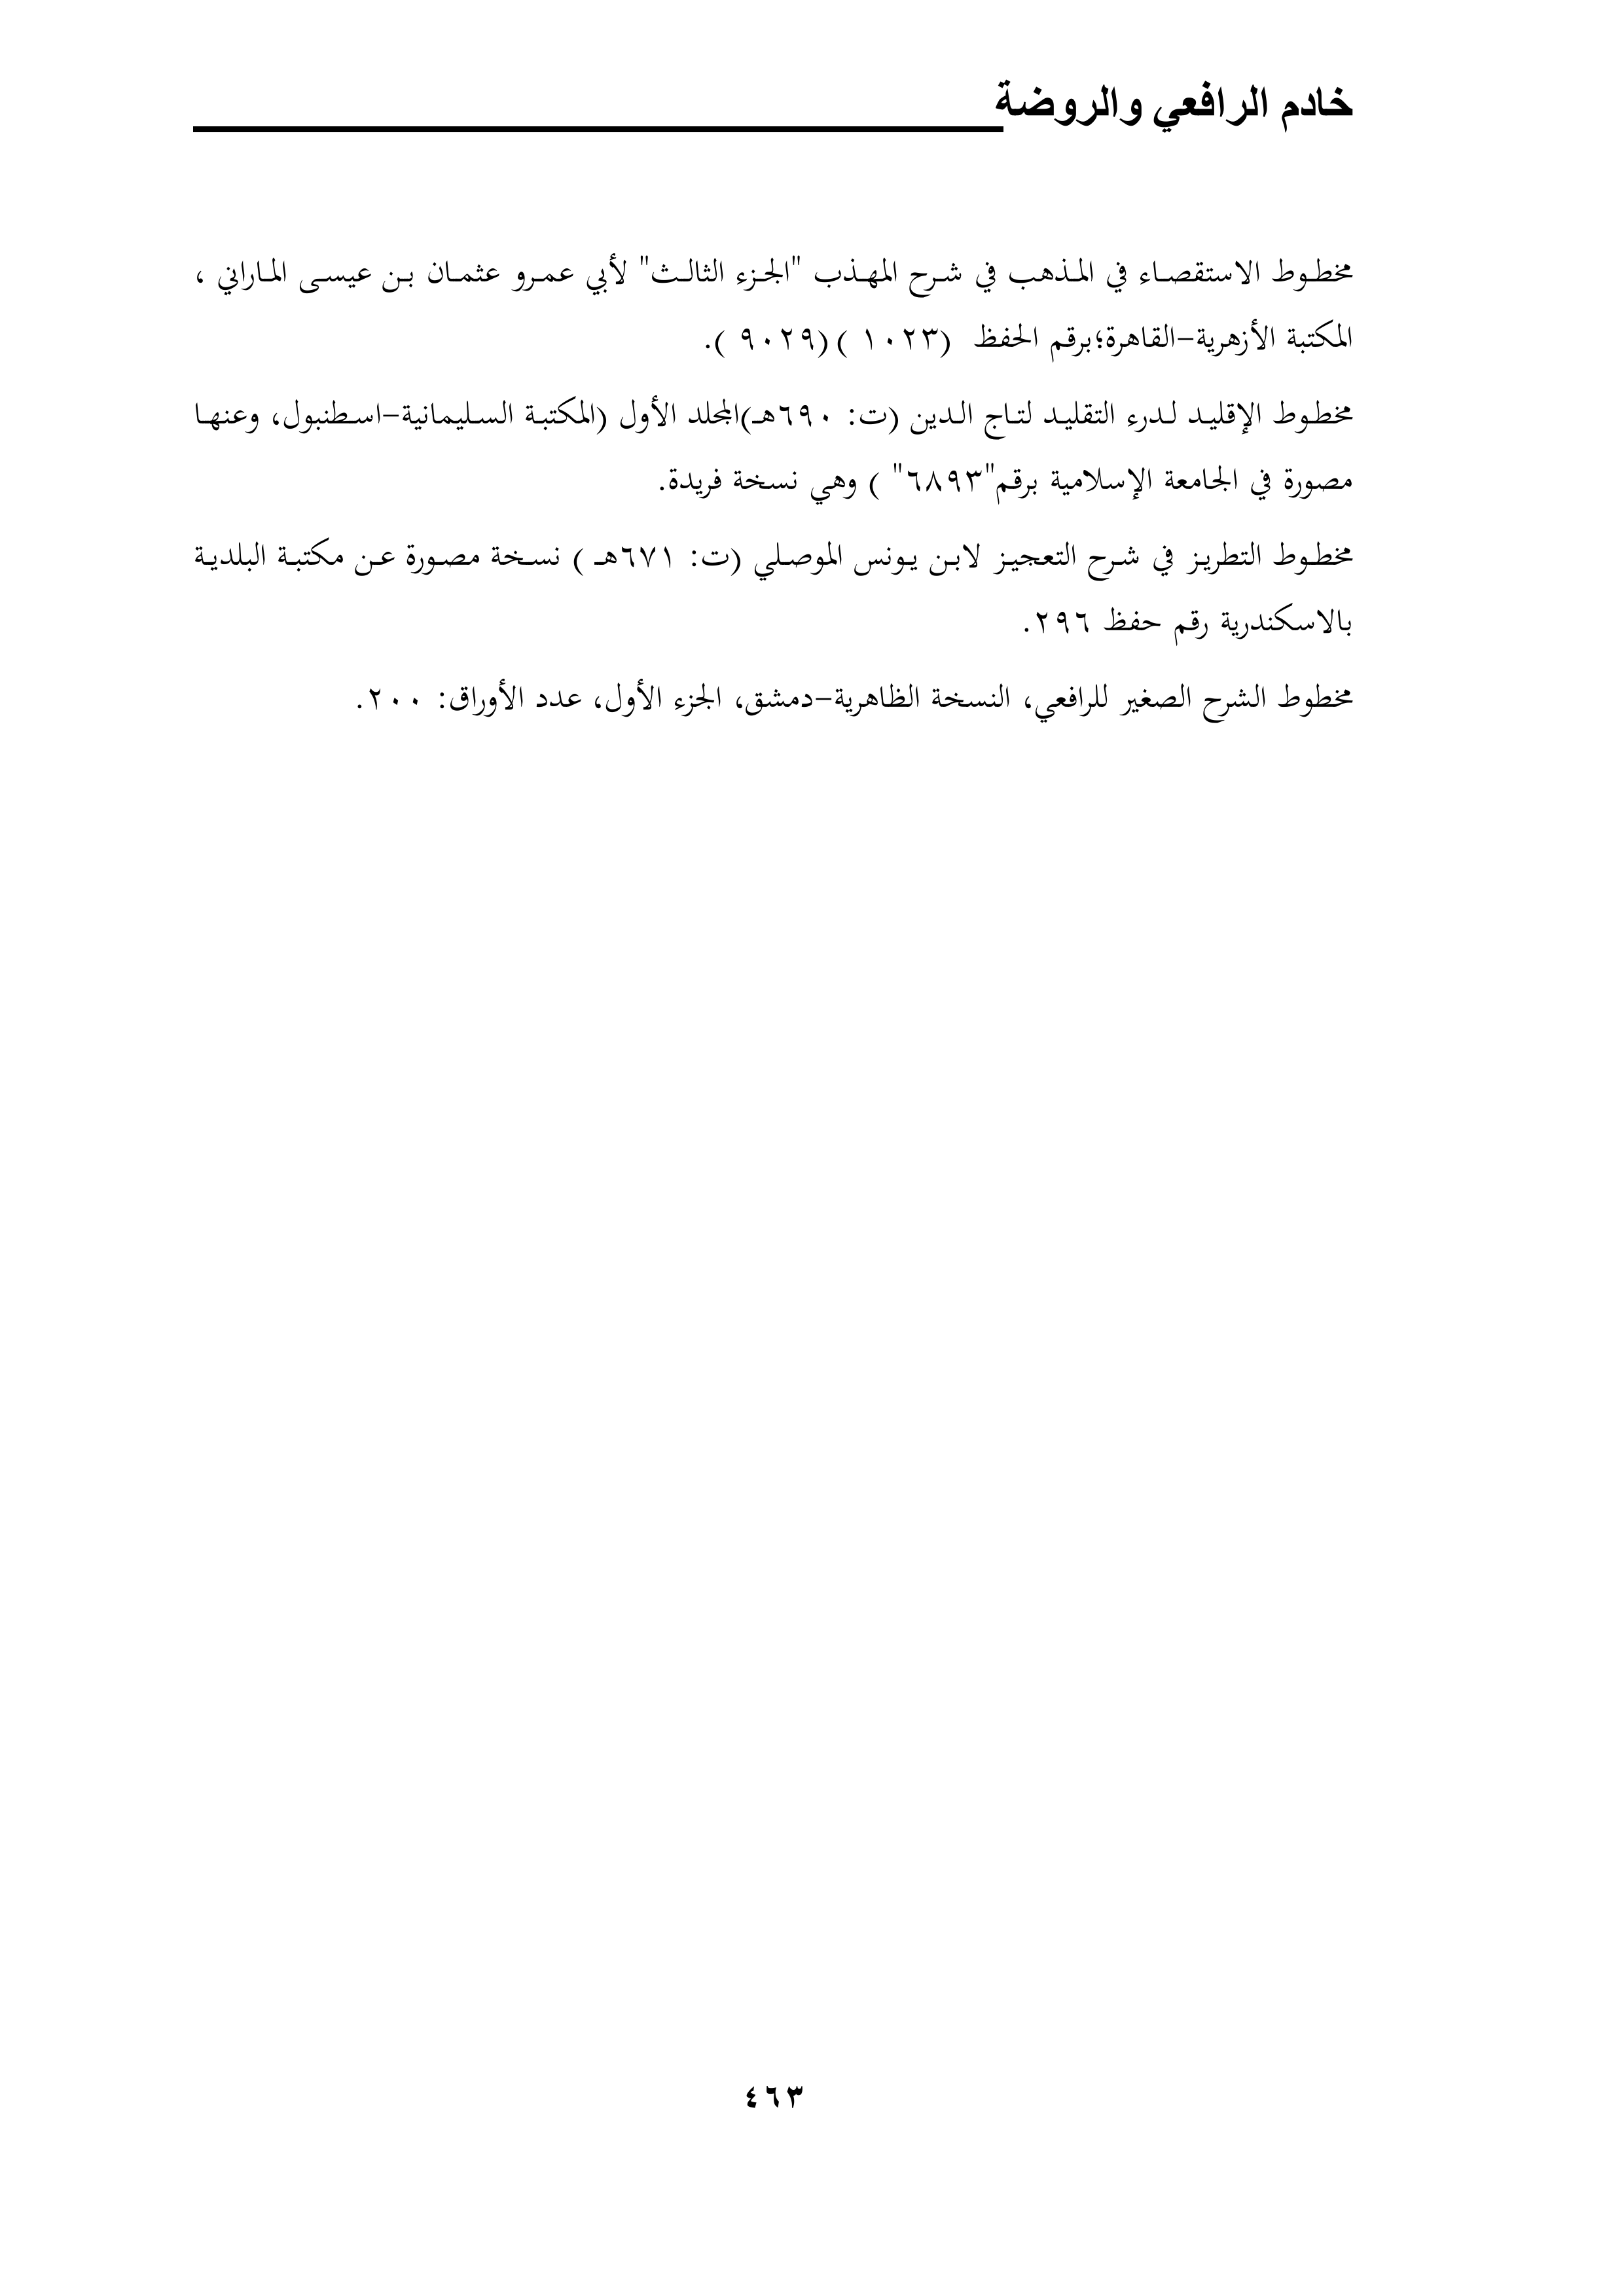 خادم الرافعي والروضة
مخطوط الاستقصاء في المذهب في شرح المهذب "الجزء الثالث" لأبي عمرو عثمان بن عيسى الماراني ،
المكتبة الأزهرية-القاهرة؛برقم الحفظ (١٠٢٣ ) (٩٠٢٩ ).
مخطوط الإقليد لدرء التقليد لتاج الدين (ت: ٦٩٠هـ)المجلد الأول (المكتبة السليمانية-اسطنبول، وعنها
مصورة في الجامعة الإسلامية برقم"٦٨٩٣" ) وهي نسخة فريدة.
مخطوط التطريز في شرح التعجيز لابن يونس الموصلي (ت: ٦٧١هـ ) نسخة مصورة عن مكتبة البلدية
بالاسكندرية رقم حفظ ٢٩٦.
مخطوط الشرح الصغير للرافعي، النسخة الظاهرية-دمشق، الجزء الأول، عدد الأوراق: ٢٠٠.
٤٦٣